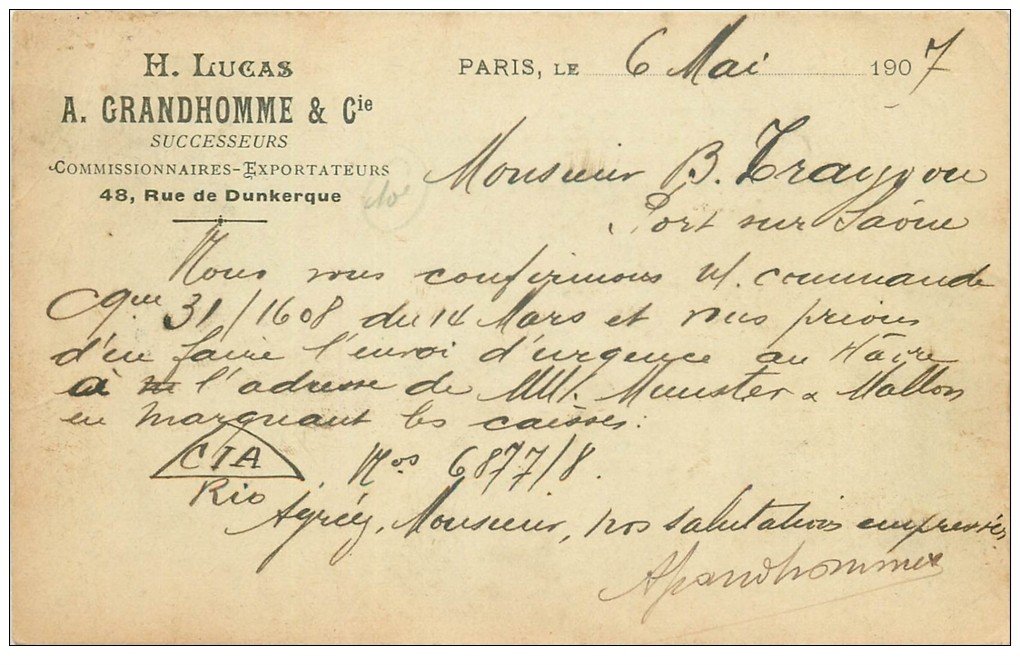 H. LUCAS
A. GRANDHOMME & Cie
SUCCESSEURS
COMMISSIONNAIRES-EXPORTATEURS
48, Rue de Dunkerque
PARIS, LE 6 Mai 1907
Monsieur B.
Port sur Saône
Nous vous confirmons n/. commande
31/1608 du 14 Mars et vous prions
d'en faire l'envoi d'urgence au Hâvre
à l'adresse de MM. Munster &
en marquant les caisses:
CIA
Rio
Nos 6877/8.
Agréez, Monsieur, nos salutations empressées
AGrandhomme